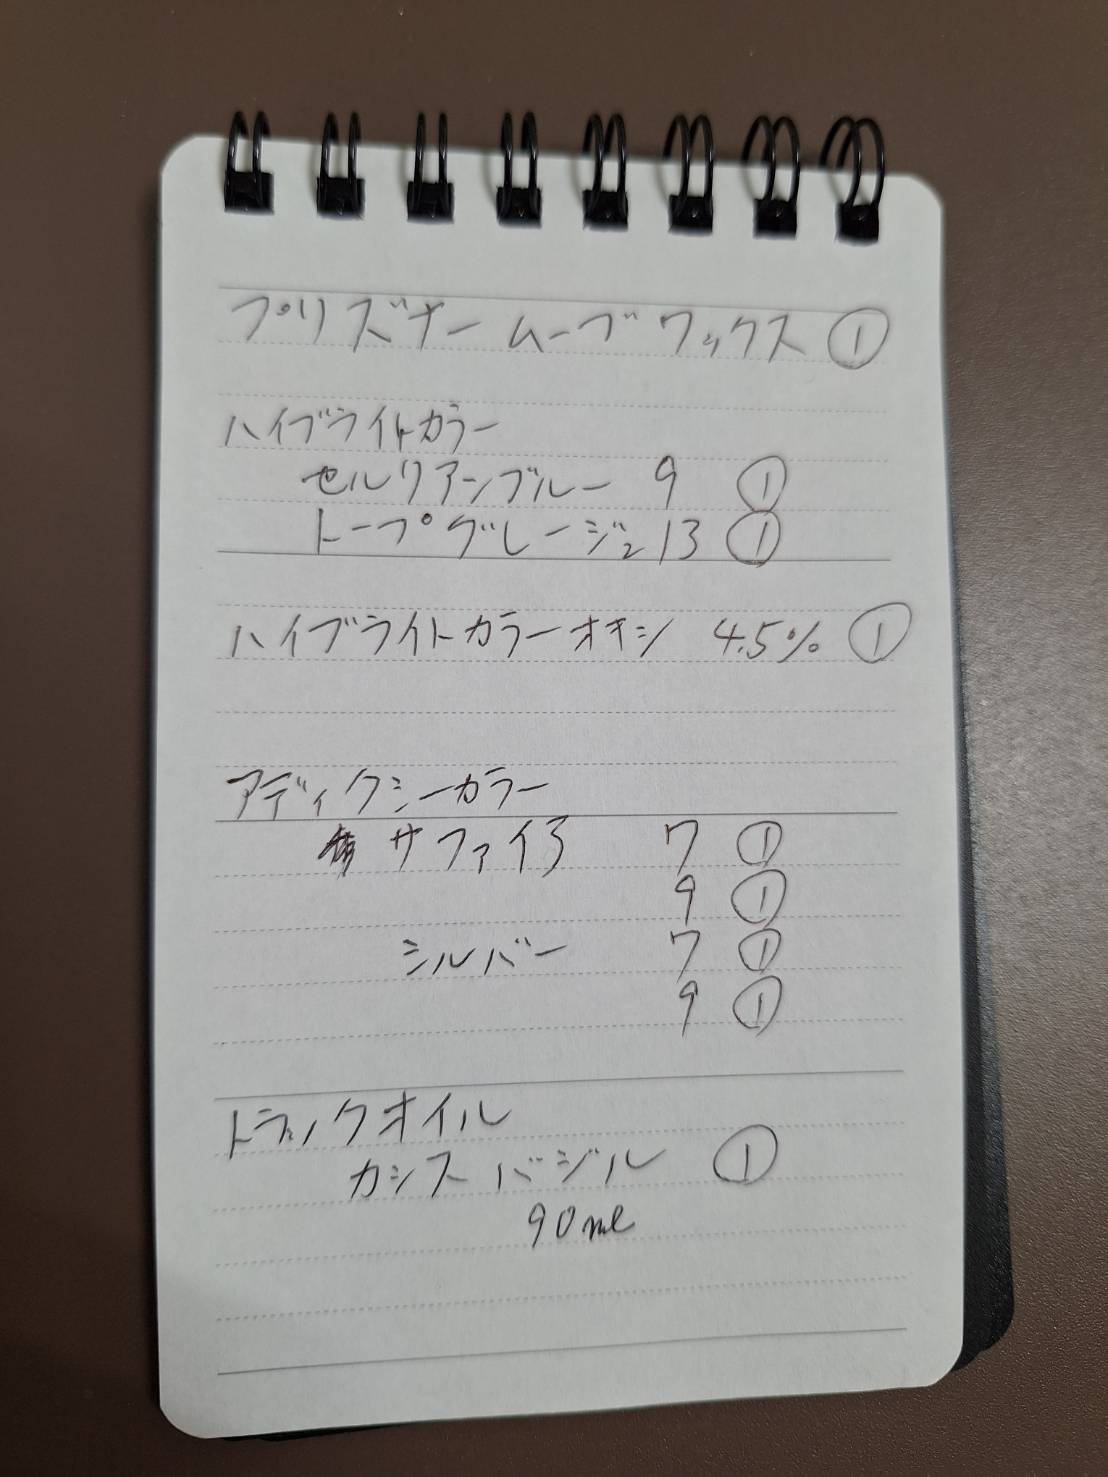 プリズナー ムーブワックス ①
ハイブライトカラー
セルリアンブルー 9 ①
トープグレージュ 13 ①
ハイブライトカラーオキシ 4.5% ①
アディクシーカラー
サファイア 7 ①
9 ①
シルバー 7 ①
9 ①
トラックオイル
カシスバジル ①
90ml